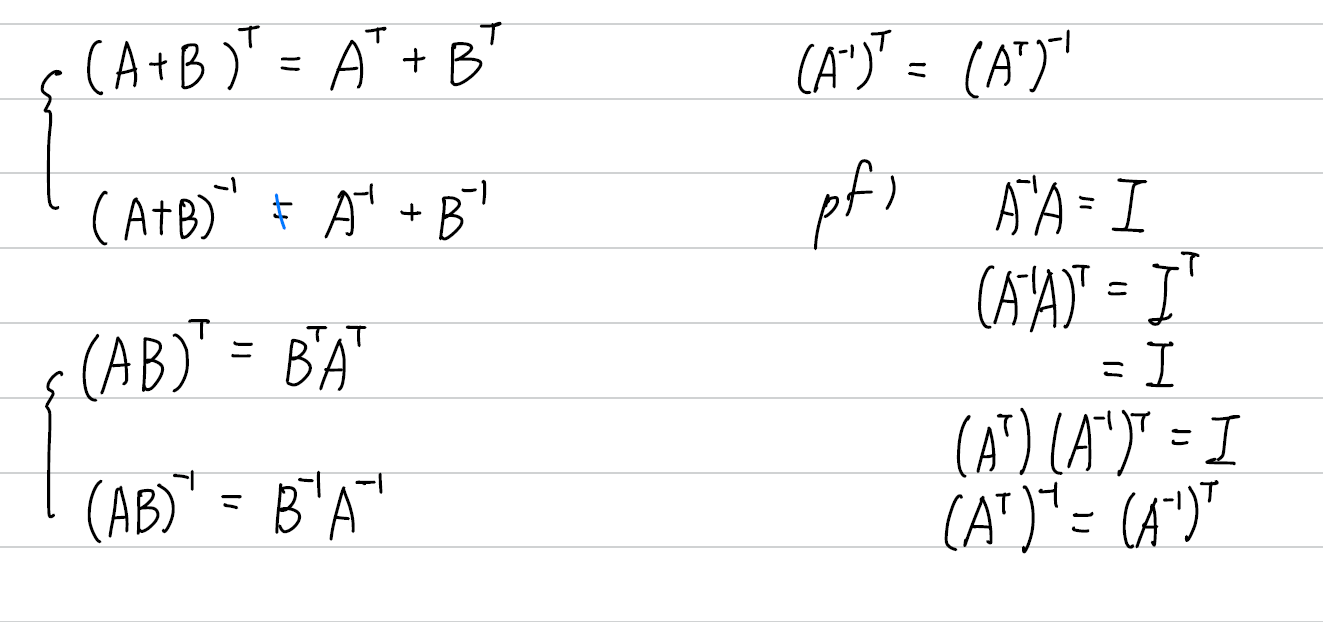 (A+B)ᵀ = Aᵀ + Bᵀ
(A+B)⁻¹ ≠ A⁻¹ + B⁻¹
(AB)ᵀ = BᵀAᵀ
(AB)⁻¹ = B⁻¹A⁻¹
(A⁻¹)ᵀ = (Aᵀ)⁻¹
pf) A⁻¹A = I
(A⁻¹A)ᵀ = Iᵀ
= I
(Aᵀ)(A⁻¹)ᵀ = I
(Aᵀ)⁻¹ = (A⁻¹)ᵀ